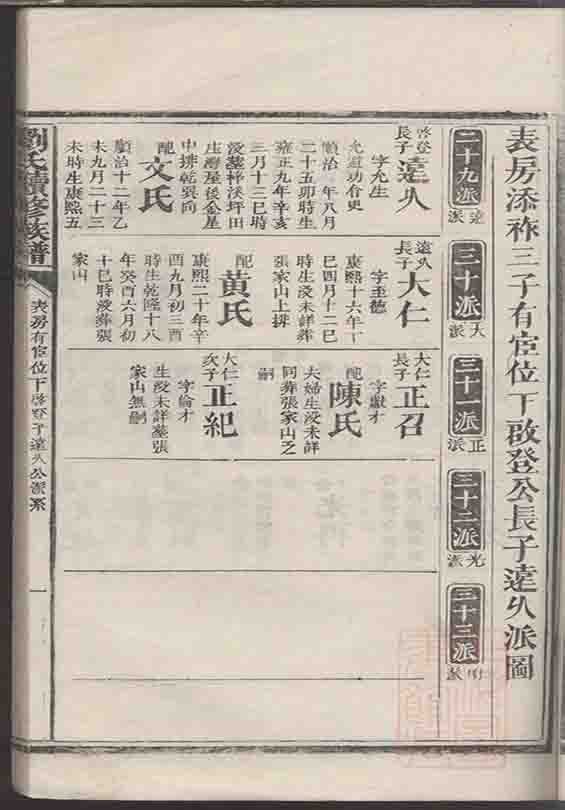 表房添祚三子有宦位下啟登公長子達久派圖
二十九派
達派
三十派
大派
三十一派
正派
三十二派
光派
三十三派
啓登
長子
達久
字允生
允遊功合史
順治 年八月
二十五卯時生
雍正九年辛亥
三月十三巳時
没墓梓溪坪田
庄灣屋後金星
中排乾巽向
配
文氏
順治十二年乙
未九月二十三
未時生康熙五
達久
長子
大仁
字玉德
康熙十六年丁
巳四月十二巳
時生没未詳葬
張家山上排
配
黄氏
康熙二十年辛
酉九月初三酉
時生乾隆十八
年癸酉六月初
十巳時没葬張
家山
大仁
長子
正召
字獻才
配
陳氏
夫婦生没未詳
同葬張家山乏
嗣
大仁
次子
正紀
字倫才
生没未詳墓張
家山無嗣
劉氏續修族譜
表房有宦位下啓登子達久公派系
一